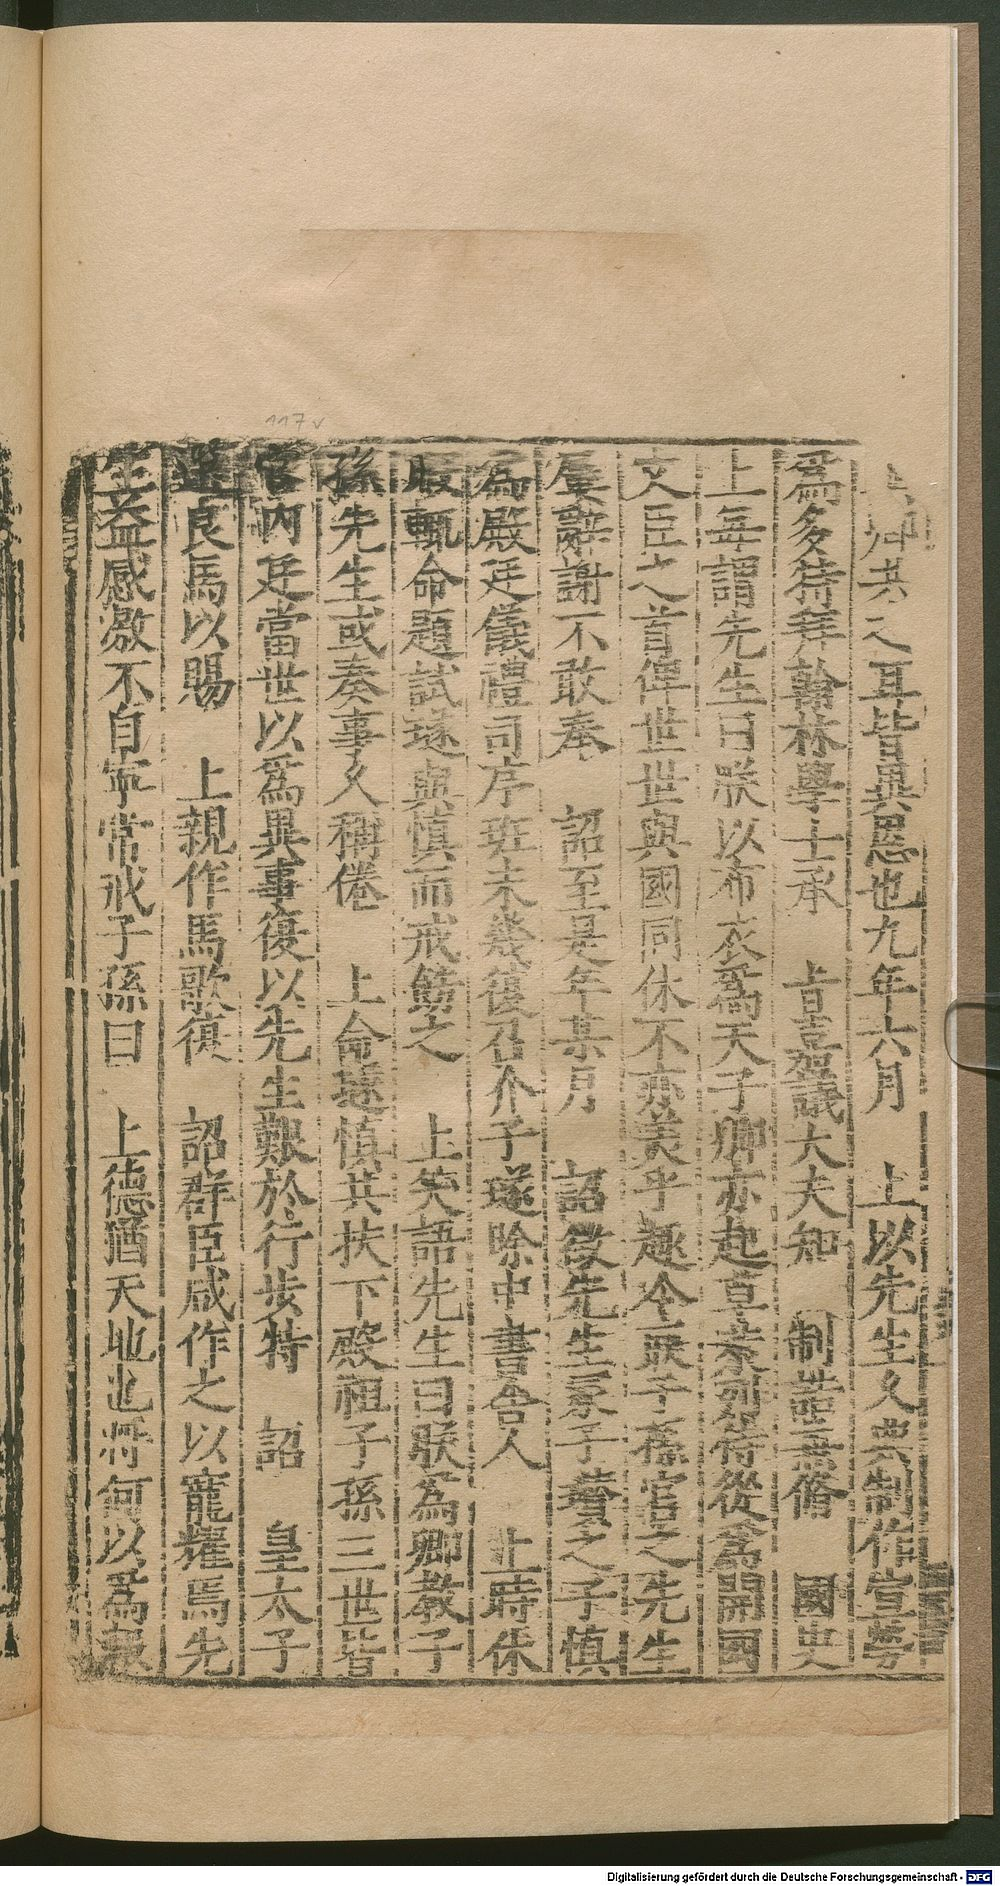 之耳皆異恩也九年六月　上以先生久典制作宣勞
爲多特拜翰林學士承　旨嘉議大夫知　制誥兼脩　國史
上每謂先生曰朕以布衣爲天子卿亦起草萊列侍從爲開國
文臣之首俾世世與國同休不亦美乎趣令取子孫官之先生
屢辭謝不敢奉　詔至是年某月　詔徵先生冢子瓚之子慎
爲殿廷儀禮司序班未幾復召介子璲除中書舍人　上時休
暇輒命題試璲與慎而戒飭之　上笑語先生曰朕爲卿教子
孫先生或奏事久稍倦　上命璲慎共扶下殿祖子孫三世皆
官內廷當世以爲異事復以先生艱於行步特　詔　皇太子
選良馬以賜　上親作馬歌復　詔群臣咸作之以寵耀焉先
生益感激不自寧常戒子孫曰　上德猶天地也將何以爲報
117v
Digitalisierung gefördert durch die Deutsche Forschungsgemeinschaft - DFG